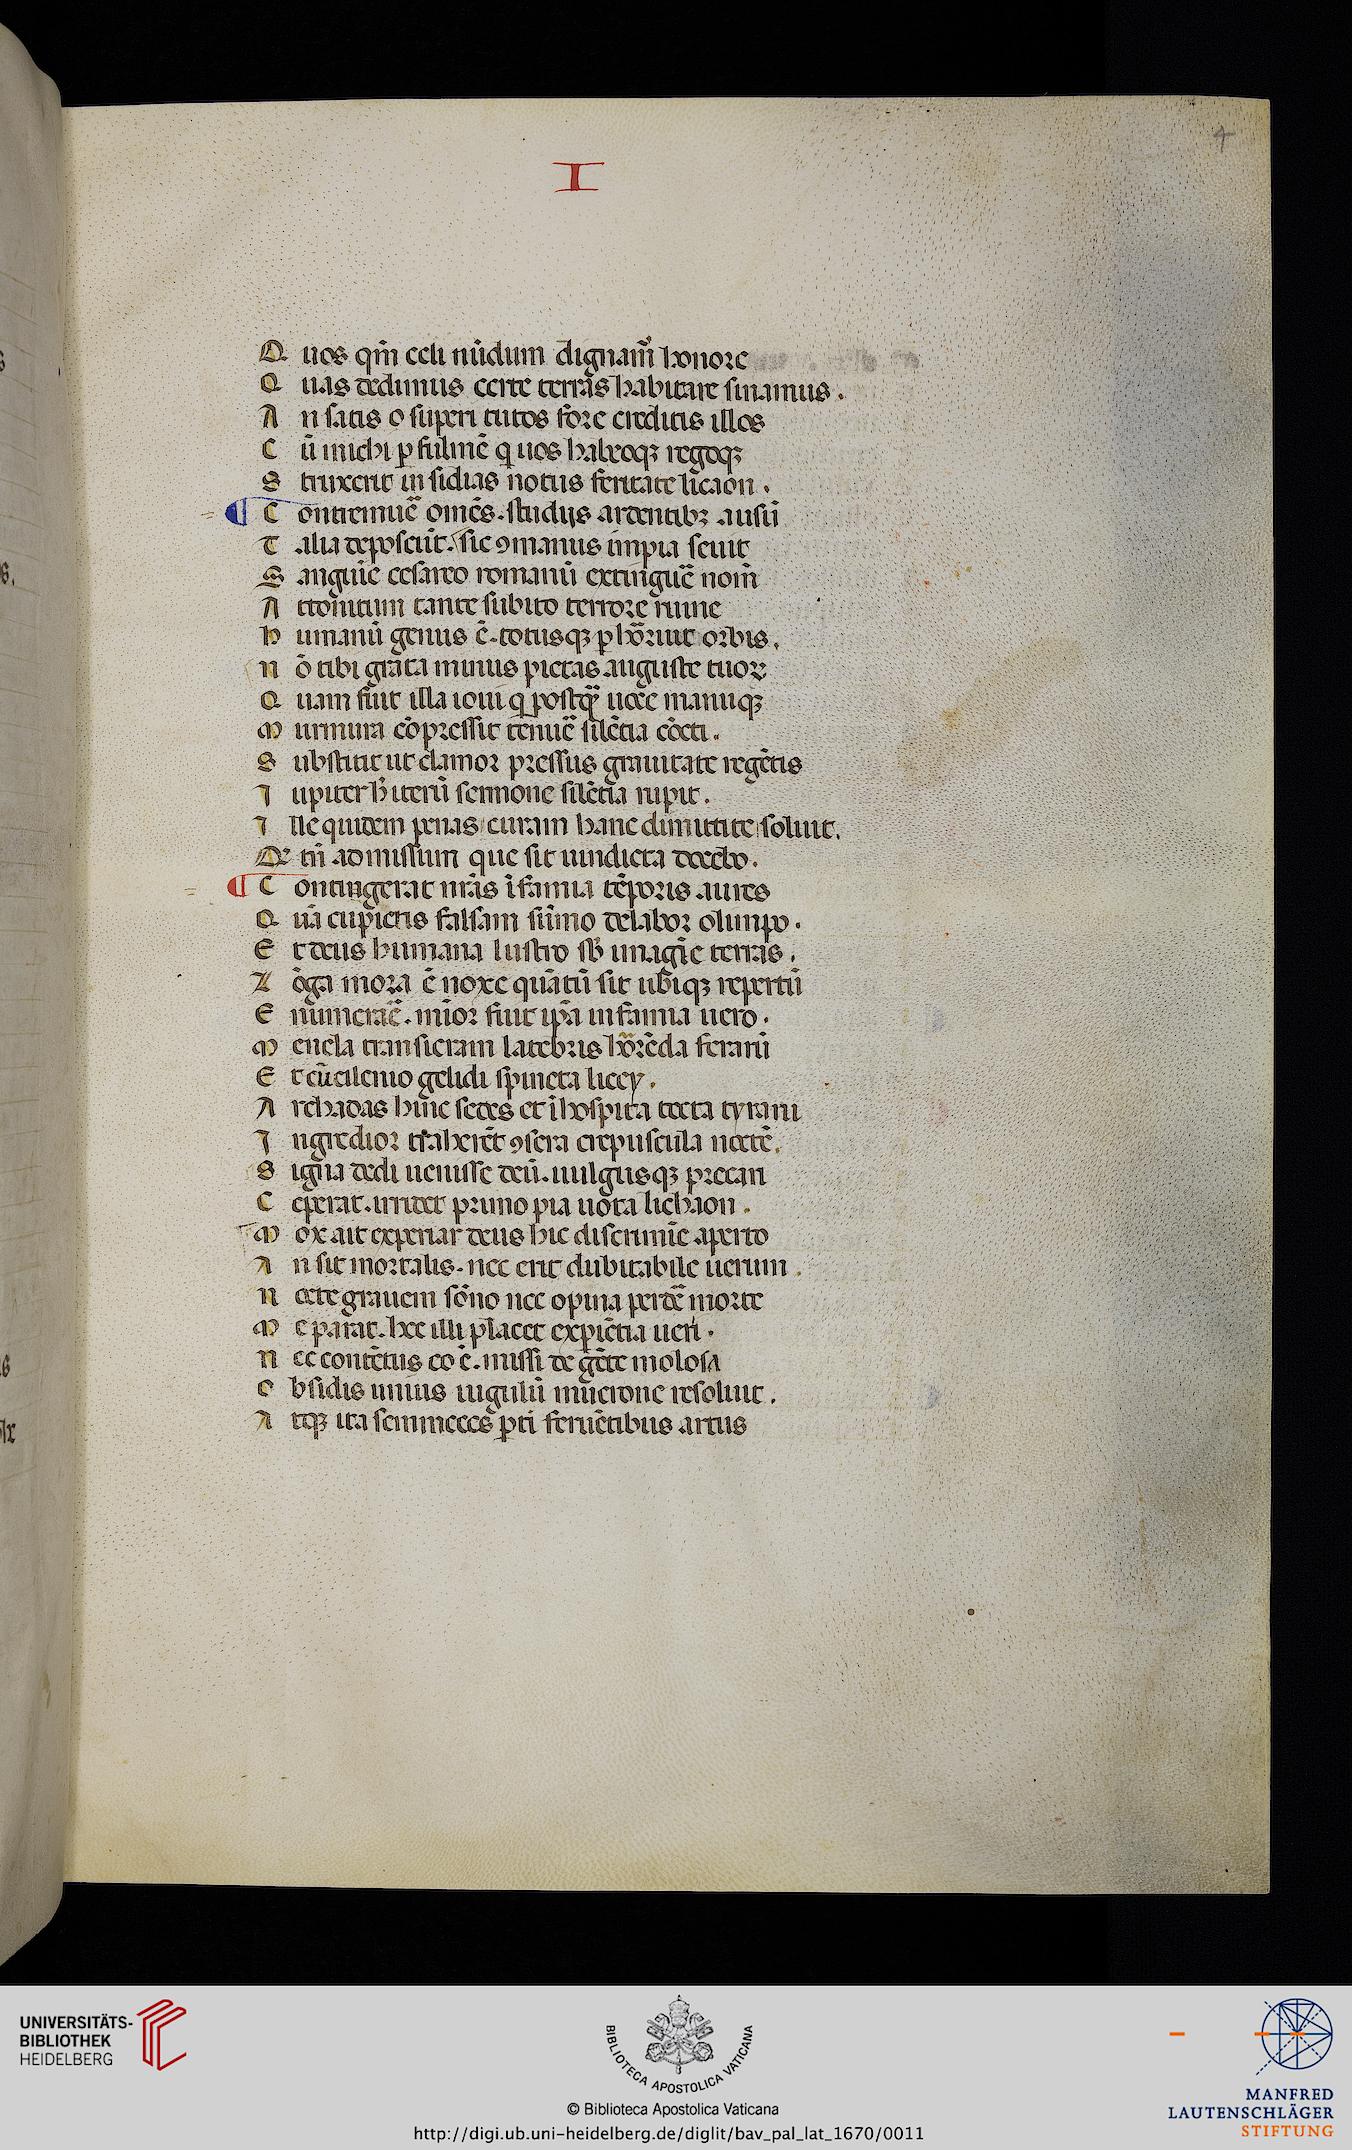 4
I
Q uos qm̄ celi nūdum dignam̄ honore
Q uas dedimus certe terras habitare sinamus .
A n satis o superi tutos fore creditis illos
C ū michi ꝑ fulmē q uos habeoqꝫ regoqꝫ
S truxerit in sidias notus feritate licaon .
¶ C ontremuē omēs . studijs ardentibꝫ ausū
T alia deposcūt . sic ꝯmanus impia seuit
S anguīe cesareo romanū extinguē nom̄
A ttonitum tante subito terrore ruine
h umanū genus ē . totusqꝫ ꝑhōꝛruit orbis .
N ō tibi grata minus pietas auguste tuoꝝ
Q uam fuit illa ioui q postq̄ uoce manuqꝫ
M urmura cōpressit tenuē silētia cōcti .
S ubstitit ut clamor pressus grauitate regētis
I upiter h̄ iterū sermone silētia rupit .
I lle quidem penas curam hanc dimittite soluit .
Q; tn̄ admissum que sit uindicta docebo .
¶ C ontingerat nrās īfamia tēporis aures
Q uā cupiens falsam sūmo delabor olimpo .
E t deus humana lustro sb̄ imagīe terras .
L ōga mora ē noxe quātū sit ubiqꝫ repertū
E numerāē . mīor fuit ip̄a infamia uero .
M enela transieram latebris hōrēda ferarū
E t cū cilenio gelidi spineta licey .
A rchadas hinc sedes et īhospita tecta tyrani
I ngredior traherēt ꝯsera crepuscula noctē .
S igna dedi uenisse deū . uulgusqꝫ precari
C eperat . irridet primo pia uota lichaon .
M ox ait experiar deus hic discrimīe aperto
A n sit mortalis . nec erit dubitabile uerum .
N octe grauem sōno nec opina perdē morte
M e parat . hec illi placet expiētia ueri .
N ec contētus eo ē . missi de gēte molosa
O bsidis unius iugulū mucrone resoluit .
A tqꝫ ita semineces ꝑtī feruētibus artus
UNIVERSITÄTS-
BIBLIOTHEK
HEIDELBERG
BIBLIOTECA APOSTOLICA VATICANA
© Biblioteca Apostolica Vaticana
http://digi.ub.uni-heidelberg.de/diglit/bav_pal_lat_1670/0011
MANFRED
LAUTENSCHLÄGER
STIFTUNG